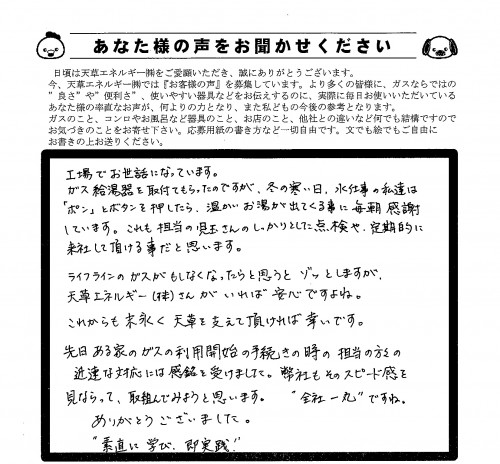 あなた様の声をお聞かせください
日頃は天草エネルギー㈱をご愛顧いただき、誠にありがとうございます。
今、天草エネルギー㈱では『お客様の声』を募集しています。より多くの皆様に、ガスならではの
“良さ”や“便利さ”、使いやすい器具などをお伝えするのに、実際に毎日お使いいただいている
あなた様の率直なお声が、何よりの力となり、また私どもの今後の参考となります。
ガスのこと、コンロやお風呂など器具のこと、お店のこと、他社との違いなど何でも結構ですので
お気づきのことをお寄せ下さい。応募用紙の書き方など一切自由です。文でも絵でもご自由に
お書きの上お送りください。
工場でお世話になっています。
ガス給湯器を取付てもらったのですが、冬の寒い日、水仕事の私達は
「ポン」とボタンを押したら、温かいお湯が出てくる事に毎朝感謝
しています。これも担当の児玉さんのしっかりとした点検や、定期的に
来社して頂ける事だと思います。
ライフラインのガスがもしなくなったらと思うとゾッとしますが、
天草エネルギー(株)さんがいれば安心ですよね。
これからも末永く天草を支えて頂ければ幸いです。
先日ある家のガスの利用開始の手続きの時の担当の方の
迅速な対応には感銘を受けました。弊社もそのスピード感を
見ならって、取組んでみようと思います。 “全社一丸”ですね。
ありがとうございました。
“素直に学び、即実践!”